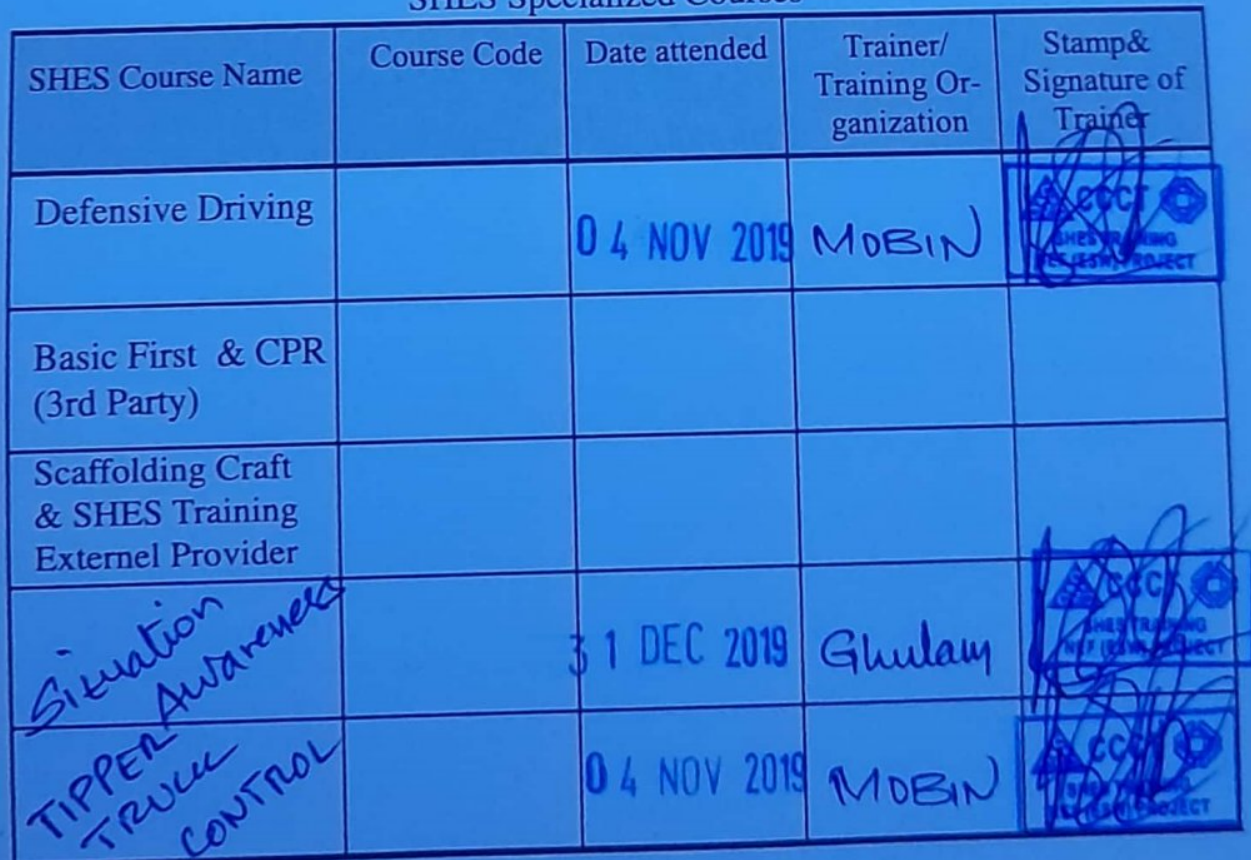 SHES Specialized Courses
SHES Course Name
Course Code
Date attended
Trainer/
Training Or-
ganization
Stamp&
Signature of
Trainer
Defensive Driving
04 NOV 2019
MOBIN
SHES TRAINING
PROJECT
Basic First & CPR
(3rd Party)
Scaffolding Craft
& SHES Training
Externel Provider
Situation
Awareness
31 DEC 2019
Ghulam
SHES TRAINING
PROJECT
TIPPER
TRUCK
CONTROL
04 NOV 2019
MOBIN
PROJECT